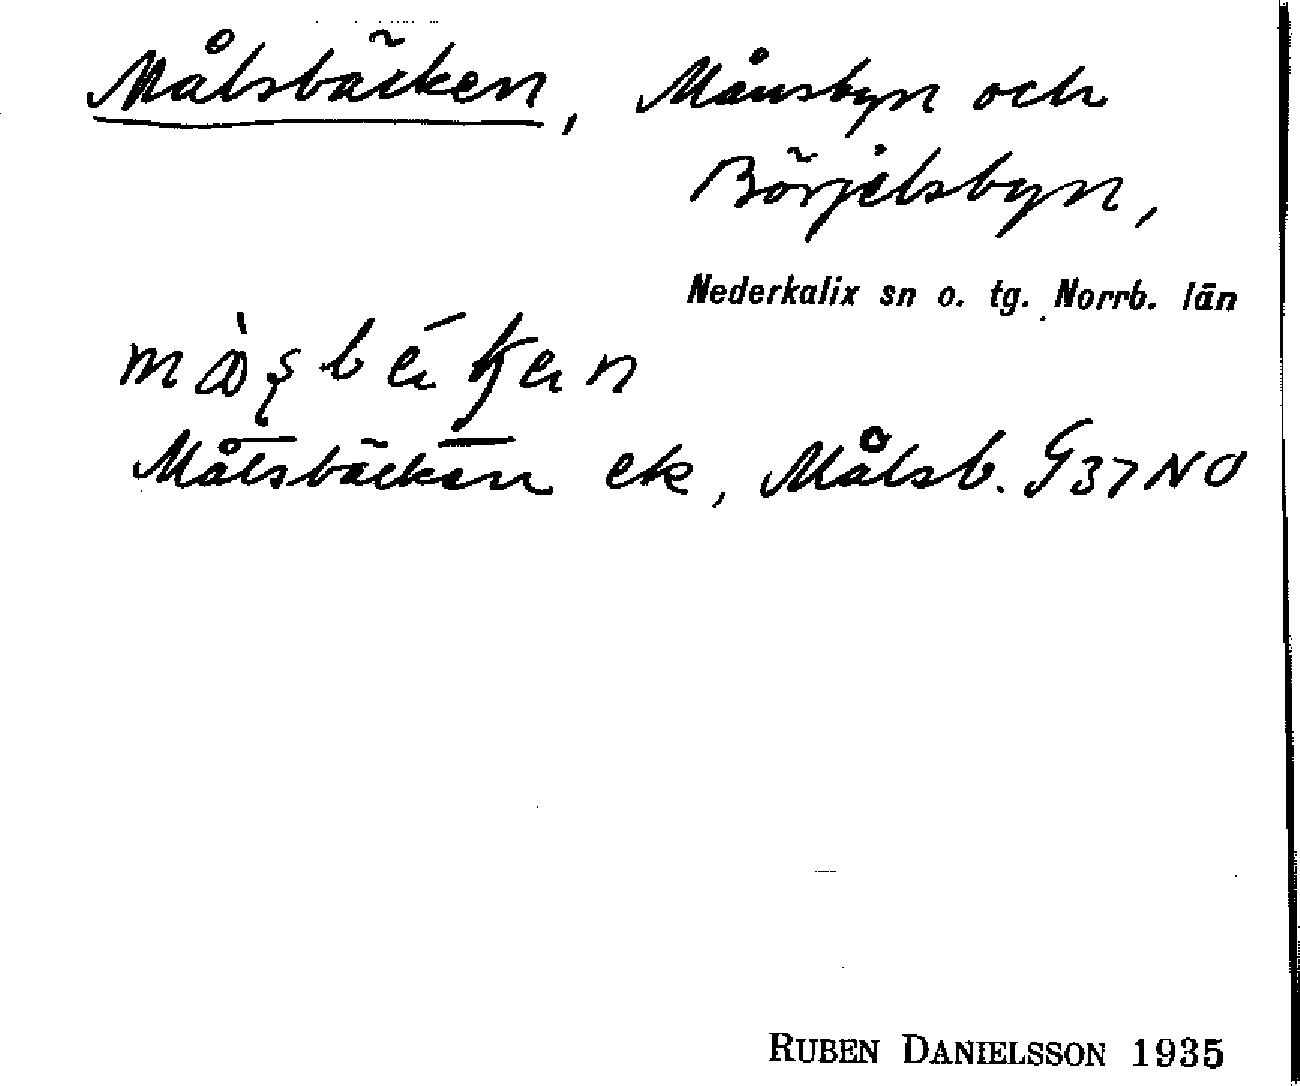 Målsbäcken, Månsbyn och
Börjelsbyn,
Nederkalix sn o. tg. Norrb. län
Målsbäcken ek, Målsb. G37NO
RUBEN DANIELSSON 1935